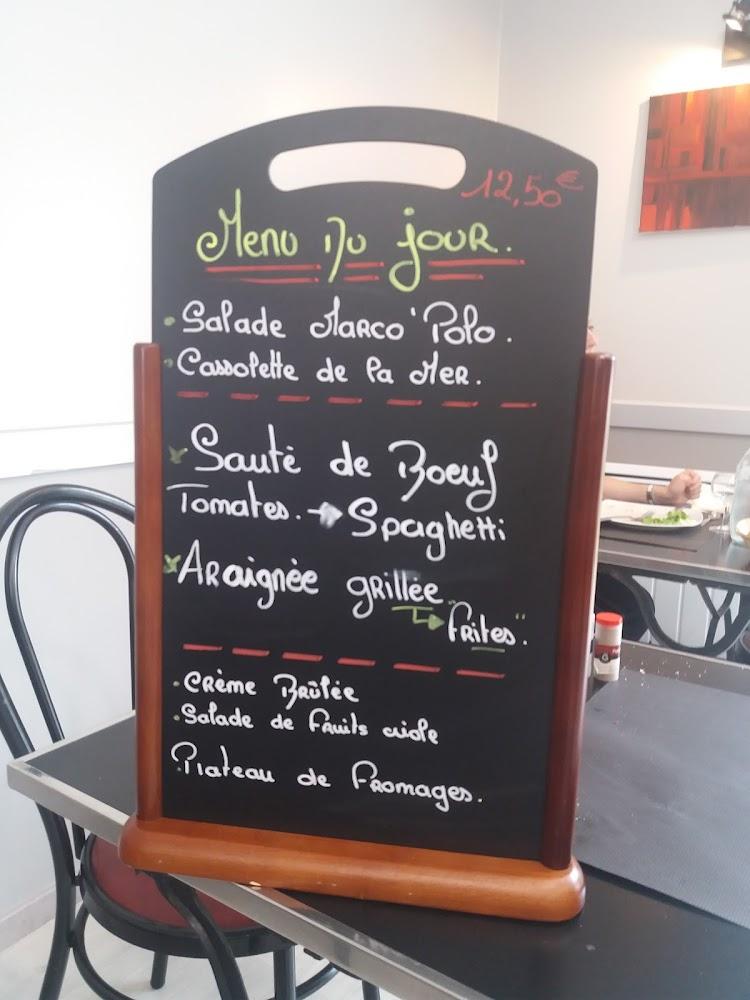 12,50€
Menu Du jour.
Salade Marco'Polo.
Cassolette de la Mer.
Sauté de Boeuf
Tomates. → Spaghetti
Araignée grillée
→ frites".
Crème Brûlée
Salade de fruits
Plateau de fromages.